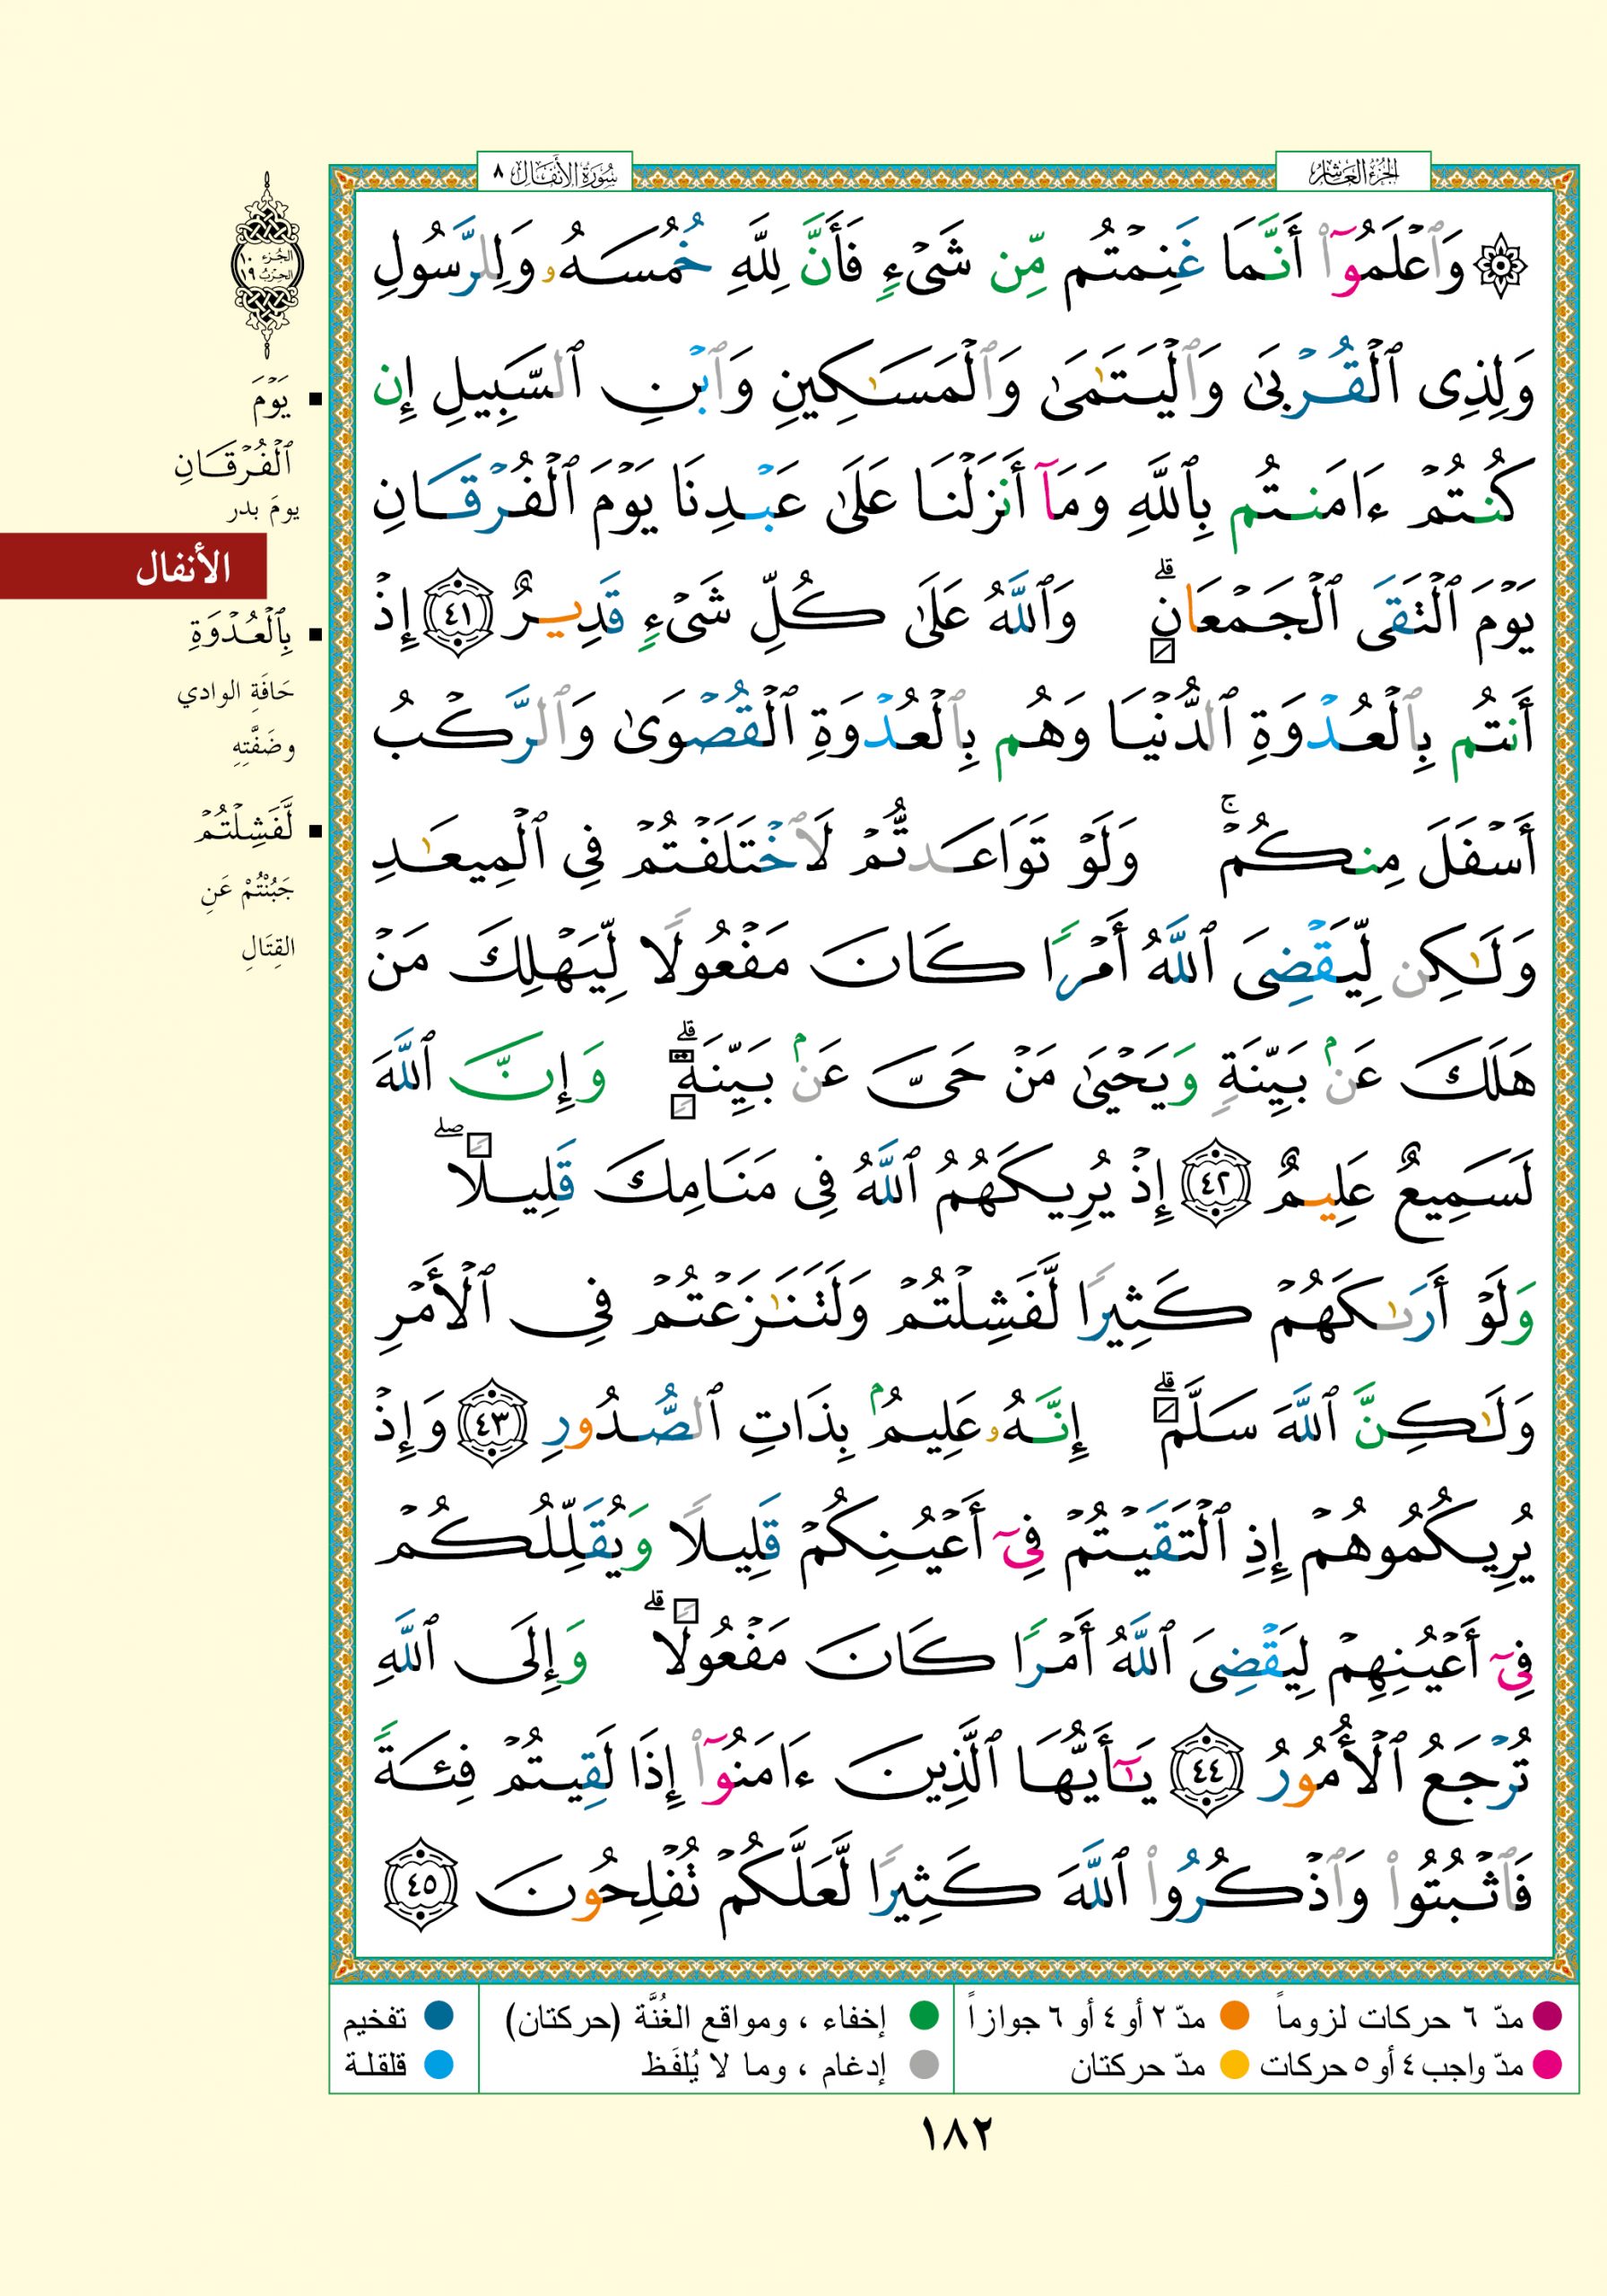 الجزء العاشر
سورة الأنفال ٨
الجزء ١٠
الحزب ١٩
۞ وَٱعۡلَمُوٓاْ أَنَّمَا غَنِمۡتُم مِّن شَيۡءٖ فَأَنَّ لِلَّهِ خُمُسَهُۥ وَلِلرَّسُولِ
وَلِذِي ٱلۡقُرۡبَىٰ وَٱلۡيَتَٰمَىٰ وَٱلۡمَسَٰكِينِ وَٱبۡنِ ٱلسَّبِيلِ إِن
كُنتُمۡ ءَامَنتُم بِٱللَّهِ وَمَآ أَنزَلۡنَا عَلَىٰ عَبۡدِنَا يَوۡمَ ٱلۡفُرۡقَانِ
يَوۡمَ ٱلۡتَقَى ٱلۡجَمۡعَانِۗ وَٱللَّهُ عَلَىٰ كُلِّ شَيۡءٖ قَدِيرٌ ٤١ إِذۡ
أَنتُم بِٱلۡعُدۡوَةِ ٱلدُّنۡيَا وَهُم بِٱلۡعُدۡوَةِ ٱلۡقُصۡوَىٰ وَٱلرَّكۡبُ
أَسۡفَلَ مِنكُمۡۚ وَلَوۡ تَوَاعَدتُّمۡ لَٱخۡتَلَفۡتُمۡ فِي ٱلۡمِيعَٰدِ
وَلَٰكِن لِّيَقۡضِيَ ٱللَّهُ أَمۡرٗا كَانَ مَفۡعُولٗا لِّيَهۡلِكَ مَنۡ
هَلَكَ عَنۢ بَيِّنَةٖ وَيَحۡيَىٰ مَنۡ حَيَّ عَنۢ بَيِّنَةٖۗ وَإِنَّ ٱللَّهَ
لَسَمِيعٌ عَلِيمٌ ٤٢ إِذۡ يُرِيكَهُمُ ٱللَّهُ فِي مَنَامِكَ قَلِيلٗاۖ
وَلَوۡ أَرَىٰكَهُمۡ كَثِيرٗا لَّفَشِلۡتُمۡ وَلَتَنَٰزَعۡتُمۡ فِي ٱلۡأَمۡرِ
وَلَٰكِنَّ ٱللَّهَ سَلَّمَۗ إِنَّهُۥ عَلِيمُۢ بِذَاتِ ٱلصُّدُورِ ٤٣ وَإِذۡ
يُرِيكُمُوهُمۡ إِذِ ٱلۡتَقَيۡتُمۡ فِيٓ أَعۡيُنِكُمۡ قَلِيلٗا وَيُقَلِّلُكُمۡ
فِيٓ أَعۡيُنِهِمۡ لِيَقۡضِيَ ٱللَّهُ أَمۡرٗا كَانَ مَفۡعُولٗاۗ وَإِلَى ٱللَّهِ
تُرۡجَعُ ٱلۡأُمُورُ ٤٤ يَٰٓأَيُّهَا ٱلَّذِينَ ءَامَنُوٓاْ إِذَا لَقِيتُمۡ فِئَةٗ
فَٱثۡبُتُواْ وَٱذۡكُرُواْ ٱللَّهَ كَثِيرٗا لَّعَلَّكُمۡ تُفۡلِحُونَ ٤٥
▪ يَوۡمَ
ٱلۡفُرۡقَانِ
يومَ بدر
الأنفال
▪ بِٱلۡعُدۡوَةِ
حَافَةِ الوادي
وضَفَّتِهِ
▪ لَّفَشِلۡتُمۡ
جَبُنْتُمْ عَنِ
القِتَالِ
مدّ ٦ حركات لزوماً
مدّ ٢ أو ٤ أو ٦ جوازاً
إخفاء ، ومواقع الغُنَّة (حركتان)
تفخيم
مدّ واجب ٤ أو ٥ حركات
مدّ حركتان
إدغام ، وما لا يُلفَظ
قلقلة
١٨٢